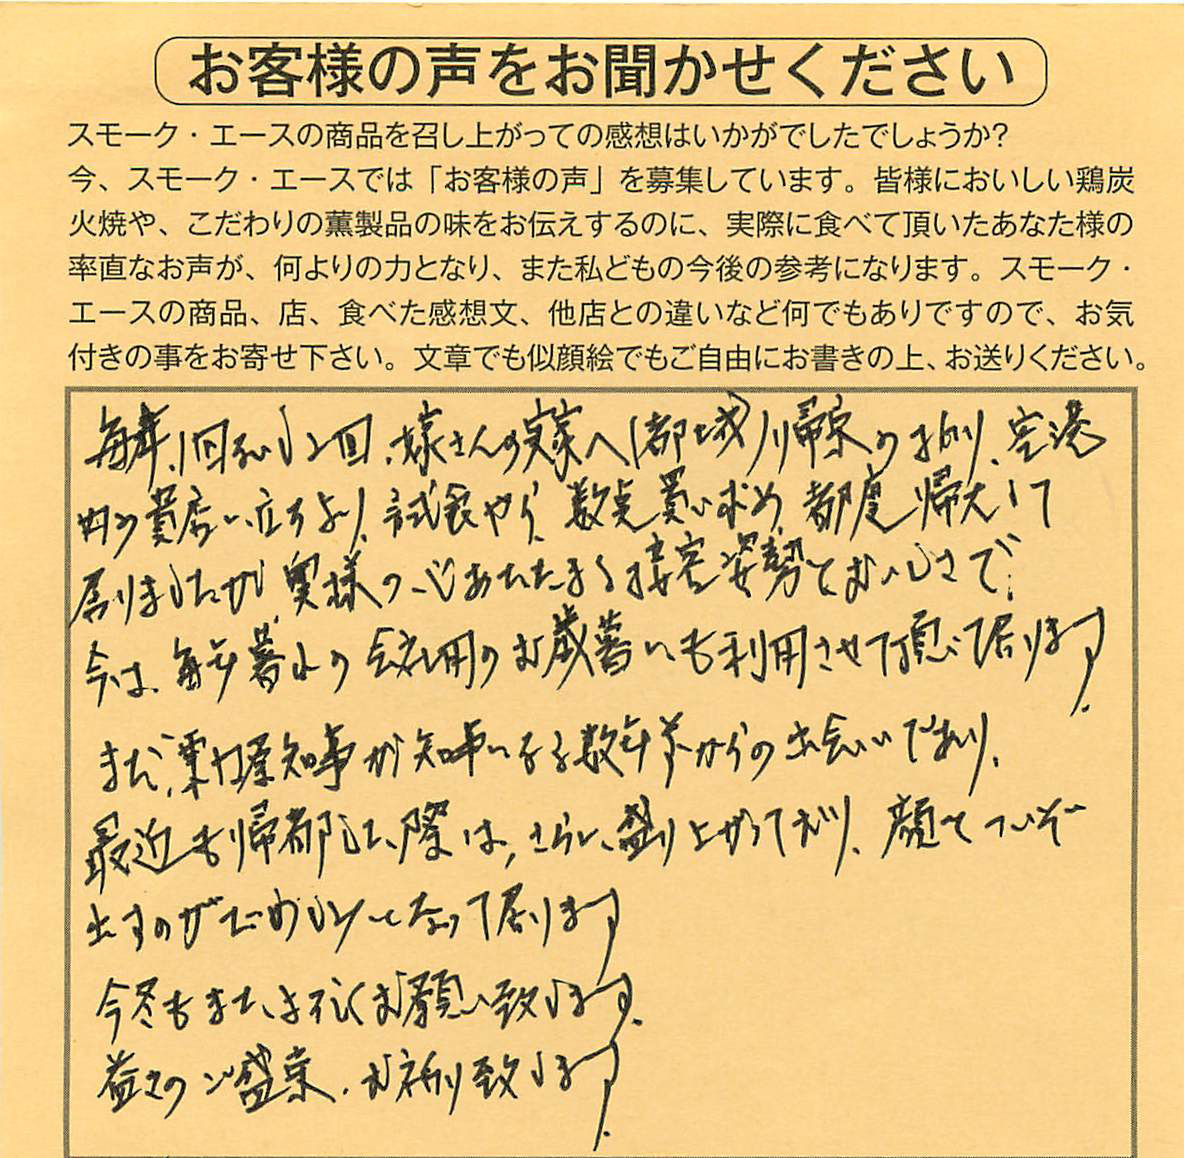 お客様の声をお聞かせください
スモーク・エースの商品を召し上がっての感想はいかがでしたでしょうか?
今、スモーク・エースでは「お客様の声」を募集しています。皆様においしい鶏炭
火焼や、こだわりの薫製品の味をお伝えするのに、実際に食べて頂いたあなた様の
率直なお声が、何よりの力となり、また私どもの今後の参考になります。スモーク・
エースの商品、店、食べた感想文、他店との違いなど何でもありですので、お気
付きの事をお寄せ下さい。文章でも似顔絵でもご自由にお書きの上、お送りください。
毎年、1回ないし2回、嫁さんの実家へ(都城)帰京のおり、空港
内の貴店に立ちより、試食やら、数点買い求め、都度帰宅して
居りましたが、奥様の心あたたまる接客姿勢とおいしさで、
今は、毎年暮れの会社用のお歳暮にも利用させて頂いて居ります。
また、東国原知事が知事になる数年前からの出会いであり、
最近も帰都した際は、さらに、盛り上がっており、顔を
出すのが なって居ります
今冬もまた、よろしくお願い致します。
益々のご盛京、お祈り致します。